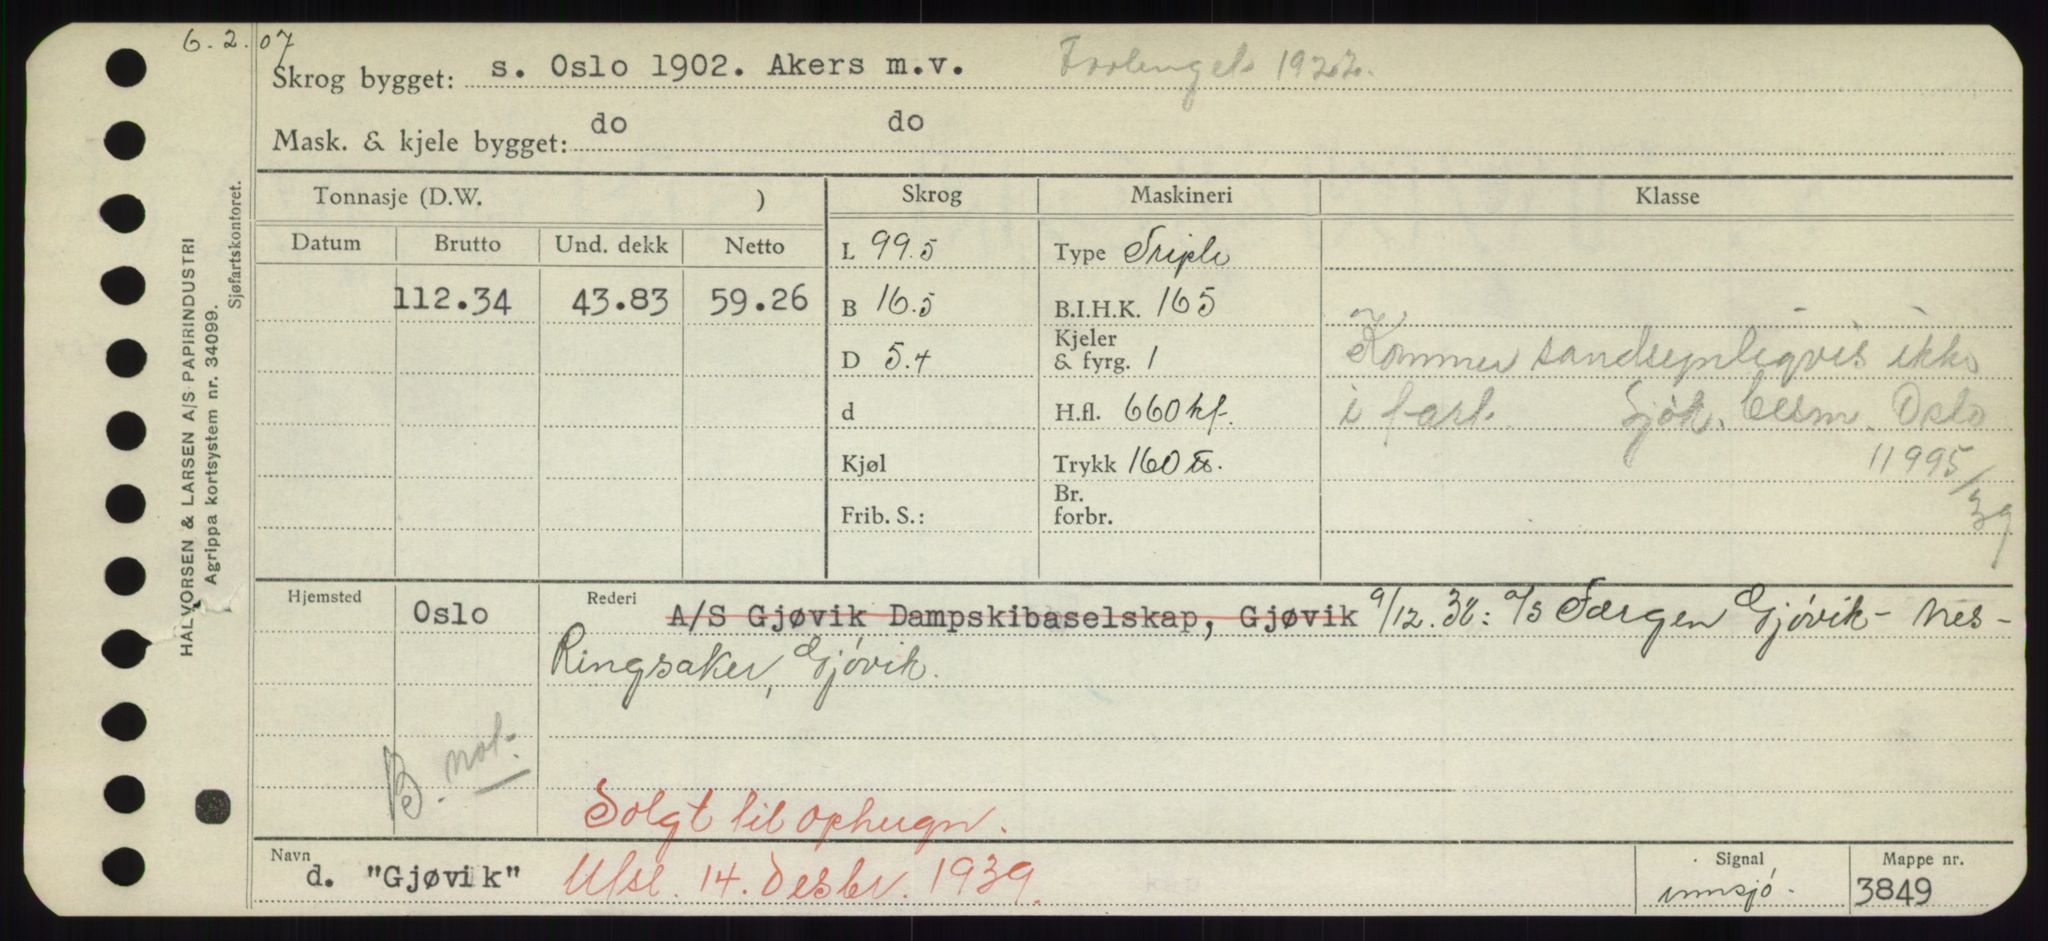 6.2.07
Skrog bygget: s. Oslo 1902. Akers m.v. Forlenget 1922.
Mask. & kjele bygget: do do
Tonnasje (D.W. ) Skrog Maskineri Klasse
Datum Brutto Und. dekk Netto L 99.5 Type Triple
112.34 43.83 59.26 B 16.5 B.I.H.K. 165
D 5.4 Kjeler & fyrg. 1 Kommer sandsynligvis ikke
d H.fl. 660 kf. i fart. Sjøk. besm. Oslo
Kjøl Trykk 160 lb. 11995/39
Frib. S.: Br. forbr.
Hjemsted Oslo Rederi A/S Gjøvik Dampskibaselskap, Gjøvik 9/12.38: A/S Færgen Gjøvik-Nes-
Ringsaker, Gjøvik.
B. not.
Solgt til ophugn.
Navn d. "Gjøvik" Utsl. 14. desbr. 1939. Signal innsjø. Mappe nr. 3849
HALVORSEN & LARSEN A/S PAPIRINDUSTRI
Agrippa kortsystem nr. 34099.
Sjøfartskontoret.